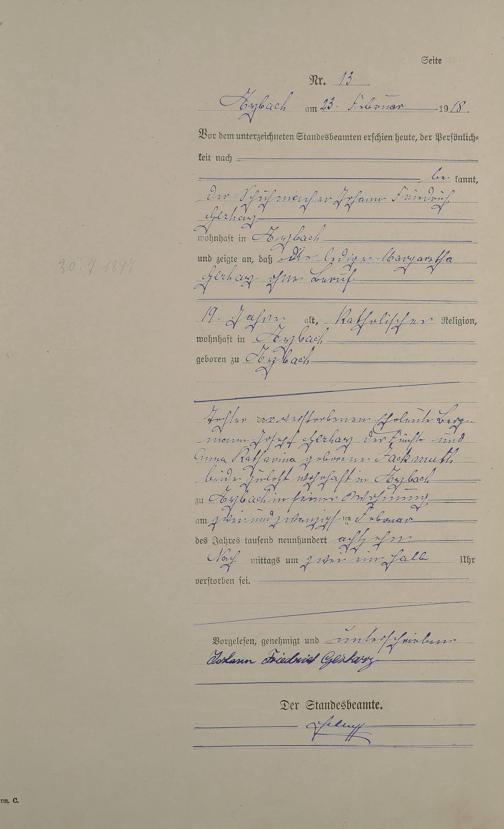 Seite
Nr. 13
Arzbach am 23. Februar 1918.
Vor dem unterzeichneten Standesbeamten erschien heute, der Persönlich-
keit nach
be kannt,
der Schuhmacher Johann Friedrich
Gerharz
wohnhaft in Arzbach
und zeigte an, daß die ledige Margaretha
Gerharz ohne Beruf
19 Jahre alt, katholischer Religion,
wohnhaft in Arzbach
geboren zu Arzbach
Tochter der verstorbenen Eheleute Berg-
mann Josef Gerharz der und
Anna Katharina geborene
beide zuletzt wohnhaft in Arzbach
zu Arzbach in seiner Wohnung
am zweiundzwanzigsten Februar
des Jahres tausend neunhundert achtzehn
Nach mittags um zwei ein halb Uhr
verstorben sei.
Vorgelesen, genehmigt und unterschrieben
Johann Friedrich Gerharz
Der Standesbeamte.
C.